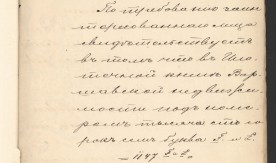 По требованію заин
тересованнаго лица
свидѣтельствуетъ
въ томъ что въ Ипо
течной книгѣ Вар
шавской недвижи
мости подъ номе
ромъ тысяча сто со
рокъ семь буква
— 1147